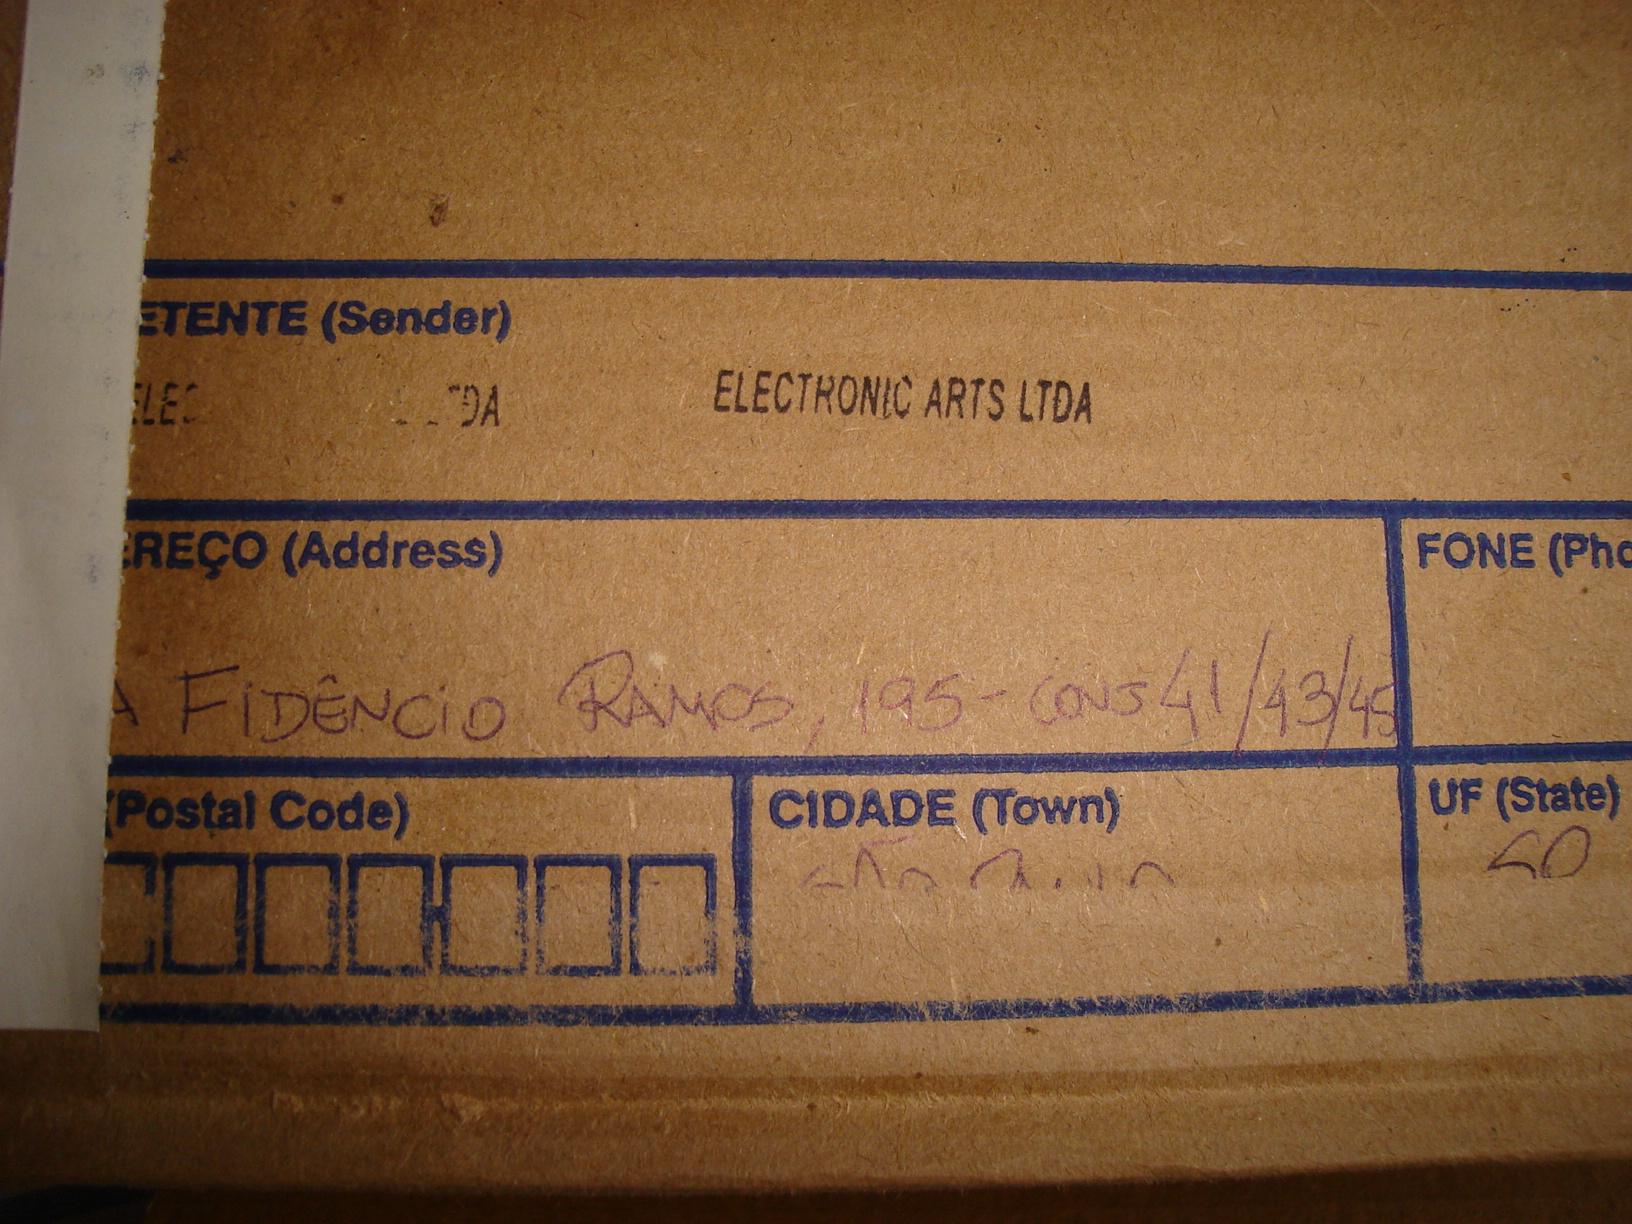 ETENTE (Sender)
ELECTRONIC ARTS LTDA
EREÇO (Address)
FONE (Pho
A FIDÊNCIO RAMOS, 195 - CONS 41/43/45
(Postal Code)
CIDADE (Town)
UF (State)